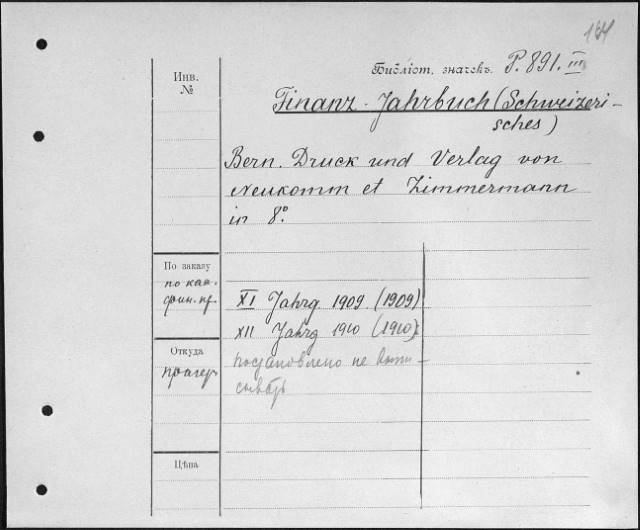 164
Библіот. значекъ. P. 891. III
Инв.
№
Finanz-Jahrbuch (Schweizeri-
sches)
Bern. Druck und Verlag von
Neukomm et Zimmermann
in 8º.
По заказу
по каѳ.
фин. пр.
XI Jahrg 1909. (1909)
XII Jahrg 1910 (1910)
Откуда
прагеръ
постановлено не выпи-
сывать
Цѣна